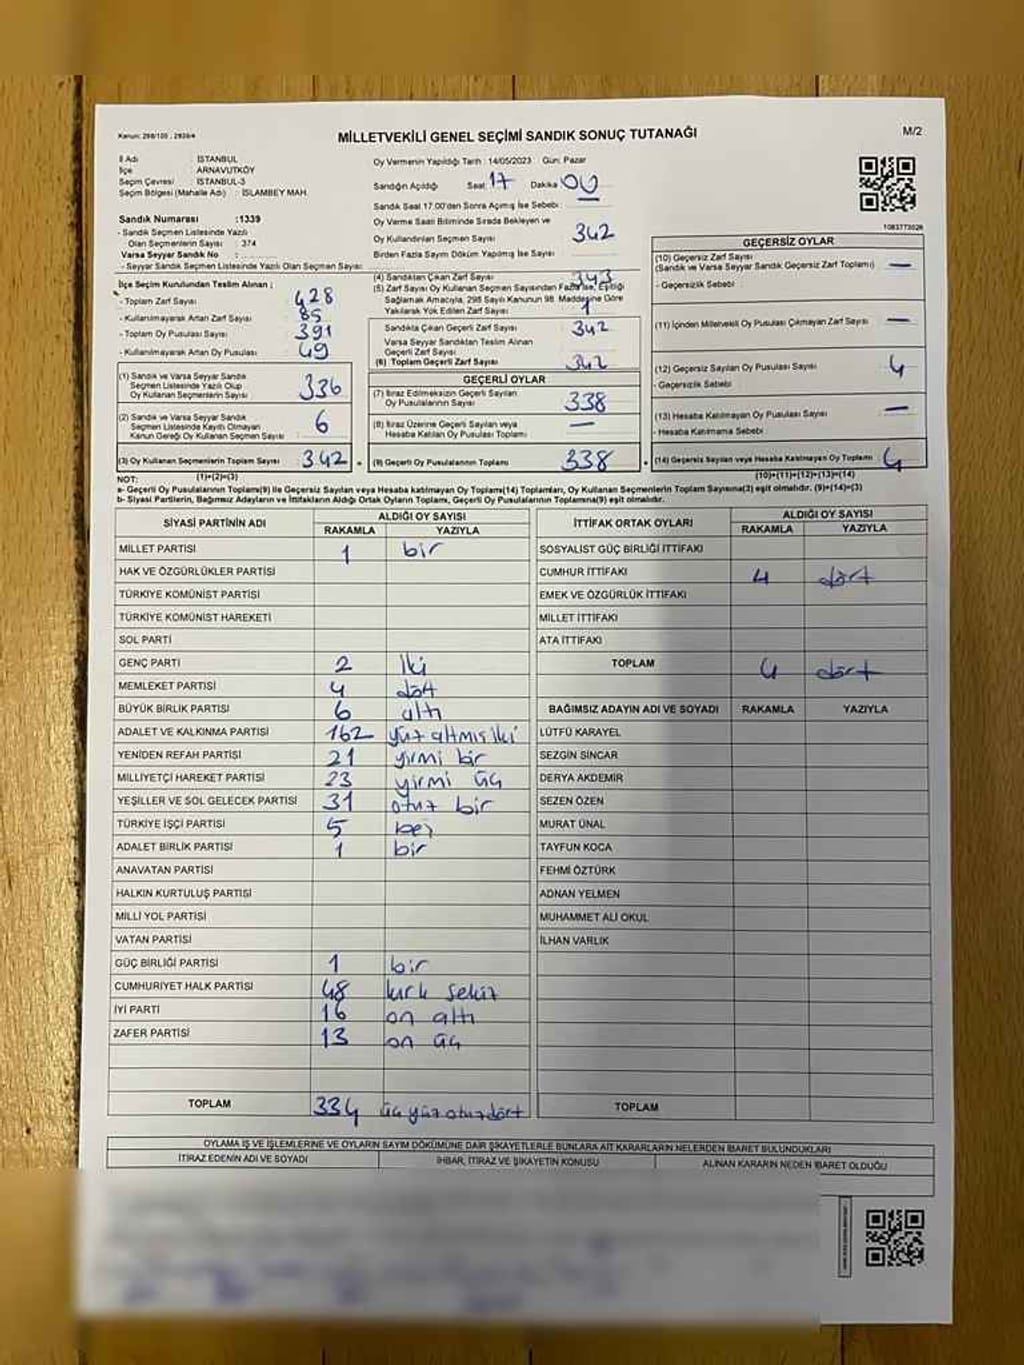 Kanun: 298/105 , 2839/4
MİLLETVEKİLİ GENEL SEÇİMİ SANDIK SONUÇ TUTANAĞI
M/2
İl Adı : İSTANBUL
İlçe : ARNAVUTKÖY
Seçim Çevresi : İSTANBUL-3
Seçim Bölgesi (Mahalle Adı) : İSLAMBEY MAH.
Sandık Numarası :1339
- Sandık Seçmen Listesinde Yazılı
Olan Seçmenlerin Sayısı : 374
Varsa Seyyar Sandık No :
- Seyyar Sandık Seçmen Listesinde Yazılı Olan Seçmen Sayısı:
Oy Vermenin Yapıldığı Tarih : 14/05/2023 Gün: Pazar
Sandığın Açıldığı Saat: 17 Dakika: 00
Sandık Saat 17.00'den Sonra Açılmış İse Sebebi:
Oy Verme Saati Bitiminde Sırada Bekleyen ve
Oy Kullandırılan Seçmen Sayısı 342
Birden Fazla Sayım Döküm Yapılmış İse Sayısı :
1083773026
İlçe Seçim Kurulundan Teslim Alınan ;
- Toplam Zarf Sayısı : 428
- Kullanılmayarak Artan Zarf Sayısı : 85
- Toplam Oy Pusulası Sayısı : 391
- Kullanılmayarak Artan Oy Pusulası : 49
(1) Sandık ve Varsa Seyyar Sandık
Seçmen Listesinde Yazılı Olup
Oy Kullanan Seçmenlerin Sayısı : 336
(2) Sandık ve Varsa Seyyar Sandık
Seçmen Listesinde Kayıtlı Olmayan
Kanun Gereği Oy Kullanan Seçmen Sayısı : 6
(3) Oy Kullanan Seçmenlerin Toplam Sayısı : 342
(1)+(2)=(3)
(4) Sandıktan Çıkan Zarf Sayısı 343
(5) Zarf Sayısı Oy Kullanan Seçmen Sayısından Fazla İse, Eşitliği
Sağlamak Amacıyla, 298 Sayılı Kanunun 98. Maddesine Göre
Yakılarak Yok Edilen Zarf Sayısı : 1
Sandıkta Çıkan Geçerli Zarf Sayısı : 342
Varsa Seyyar Sandıktan Teslim Alınan
Geçerli Zarf Sayısı
(6) Toplam Geçerli Zarf Sayısı : 342
GEÇERLİ OYLAR
(7) İtiraz Edilmeksizin Geçerli Sayılan
Oy Pusulalarının Sayısı : 338
(8) İtiraz Üzerine Geçerli Sayılan veya
Hesaba Katılan Oy Pusulaları Toplamı : —
(9) Geçerli Oy Pusulalarının Toplamı : 338
GEÇERSİZ OYLAR
(10) Geçersiz Zarf Sayısı
(Sandık ve Varsa Seyyar Sandık Geçersiz Zarf Toplamı) : —
- Geçersizlik Sebebi :
(11) İçinden Milletvekili Oy Pusulası Çıkmayan Zarf Sayısı : —
(12) Geçersiz Sayılan Oy Pusulası Sayısı : 4
- Geçersizlik Sebebi :
(13) Hesaba Katılmayan Oy Pusulası Sayısı : —
- Hesaba Katılmama Sebebi :
(14) Geçersiz Sayılan veya Hesaba Katılmayan Oy Toplamı : 4
(10)+(11)+(12)+(13)=(14)
NOT:
a- Geçerli Oy Pusulalarının Toplamı(9) ile Geçersiz Sayılan veya Hesaba katılmayan Oy Toplamı(14) Toplamları, Oy Kullanan Seçmenlerin Toplam Sayısına(3) eşit olmalıdır. (9)+(14)=(3)
b- Siyasi Partilerin, Bağımsız Adayların ve İttifakların Aldığı Ortak Oyların Toplamı, Geçerli Oy Pusulalarının Toplamına(9) eşit olmalıdır.
SİYASİ PARTİNİN ADI ALDIĞI OY SAYISI
RAKAMLA YAZIYLA
MİLLET PARTİSİ 1 bir
HAK VE ÖZGÜRLÜKLER PARTİSİ
TÜRKİYE KOMÜNİST PARTİSİ
TÜRKİYE KOMÜNİST HAREKETİ
SOL PARTİ
GENÇ PARTİ 2 iki
MEMLEKET PARTİSİ 4 dört
BÜYÜK BİRLİK PARTİSİ 6 altı
ADALET VE KALKINMA PARTİSİ 162 yüz altmış iki
YENİDEN REFAH PARTİSİ 21 yirmi bir
MİLLİYETÇİ HAREKET PARTİSİ 23 yirmi üç
YEŞİLLER VE SOL GELECEK PARTİSİ 31 otuz bir
TÜRKİYE İŞÇİ PARTİSİ 5 beş
ADALET BİRLİK PARTİSİ 1 bir
ANAVATAN PARTİSİ
HALKIN KURTULUŞ PARTİSİ
MİLLİ YOL PARTİSİ
VATAN PARTİSİ
GÜÇ BİRLİĞİ PARTİSİ 1 bir
CUMHURİYET HALK PARTİSİ 48 kırk sekiz
İYİ PARTİ 16 on altı
ZAFER PARTİSİ 13 on üç
TOPLAM 334 üç yüz otuz dört
İTTİFAK ORTAK OYLARI ALDIĞI OY SAYISI
RAKAMLA YAZIYLA
SOSYALİST GÜÇ BİRLİĞİ İTTİFAKI
CUMHUR İTTİFAKI 4 dört
EMEK VE ÖZGÜRLÜK İTTİFAKI
MİLLET İTTİFAKI
ATA İTTİFAKI
TOPLAM 4 dört
BAĞIMSIZ ADAYIN ADI VE SOYADI RAKAMLA YAZIYLA
LÜTFÜ KARAYEL
SEZGİN SİNCAR
DERYA AKDEMİR
SEZEN ÖZEN
MURAT ÜNAL
TAYFUN KOCA
FEHMİ ÖZTÜRK
ADNAN YELMEN
MUHAMMET ALİ OKUL
İLHAN VARLIK
TOPLAM
OYLAMA İŞ VE İŞLEMLERİNE VE OYLARIN SAYIM DÖKÜMÜNE DAİR ŞİKAYETLERLE BUNLARA AİT KARARLARIN NELERDEN İBARET BULUNDUKLARI
İTİRAZ EDENİN ADI VE SOYADI İHBAR, İTİRAZ VE ŞİKAYETİN KONUSU ALINAN KARARIN NEDEN İBARET OLDUĞU